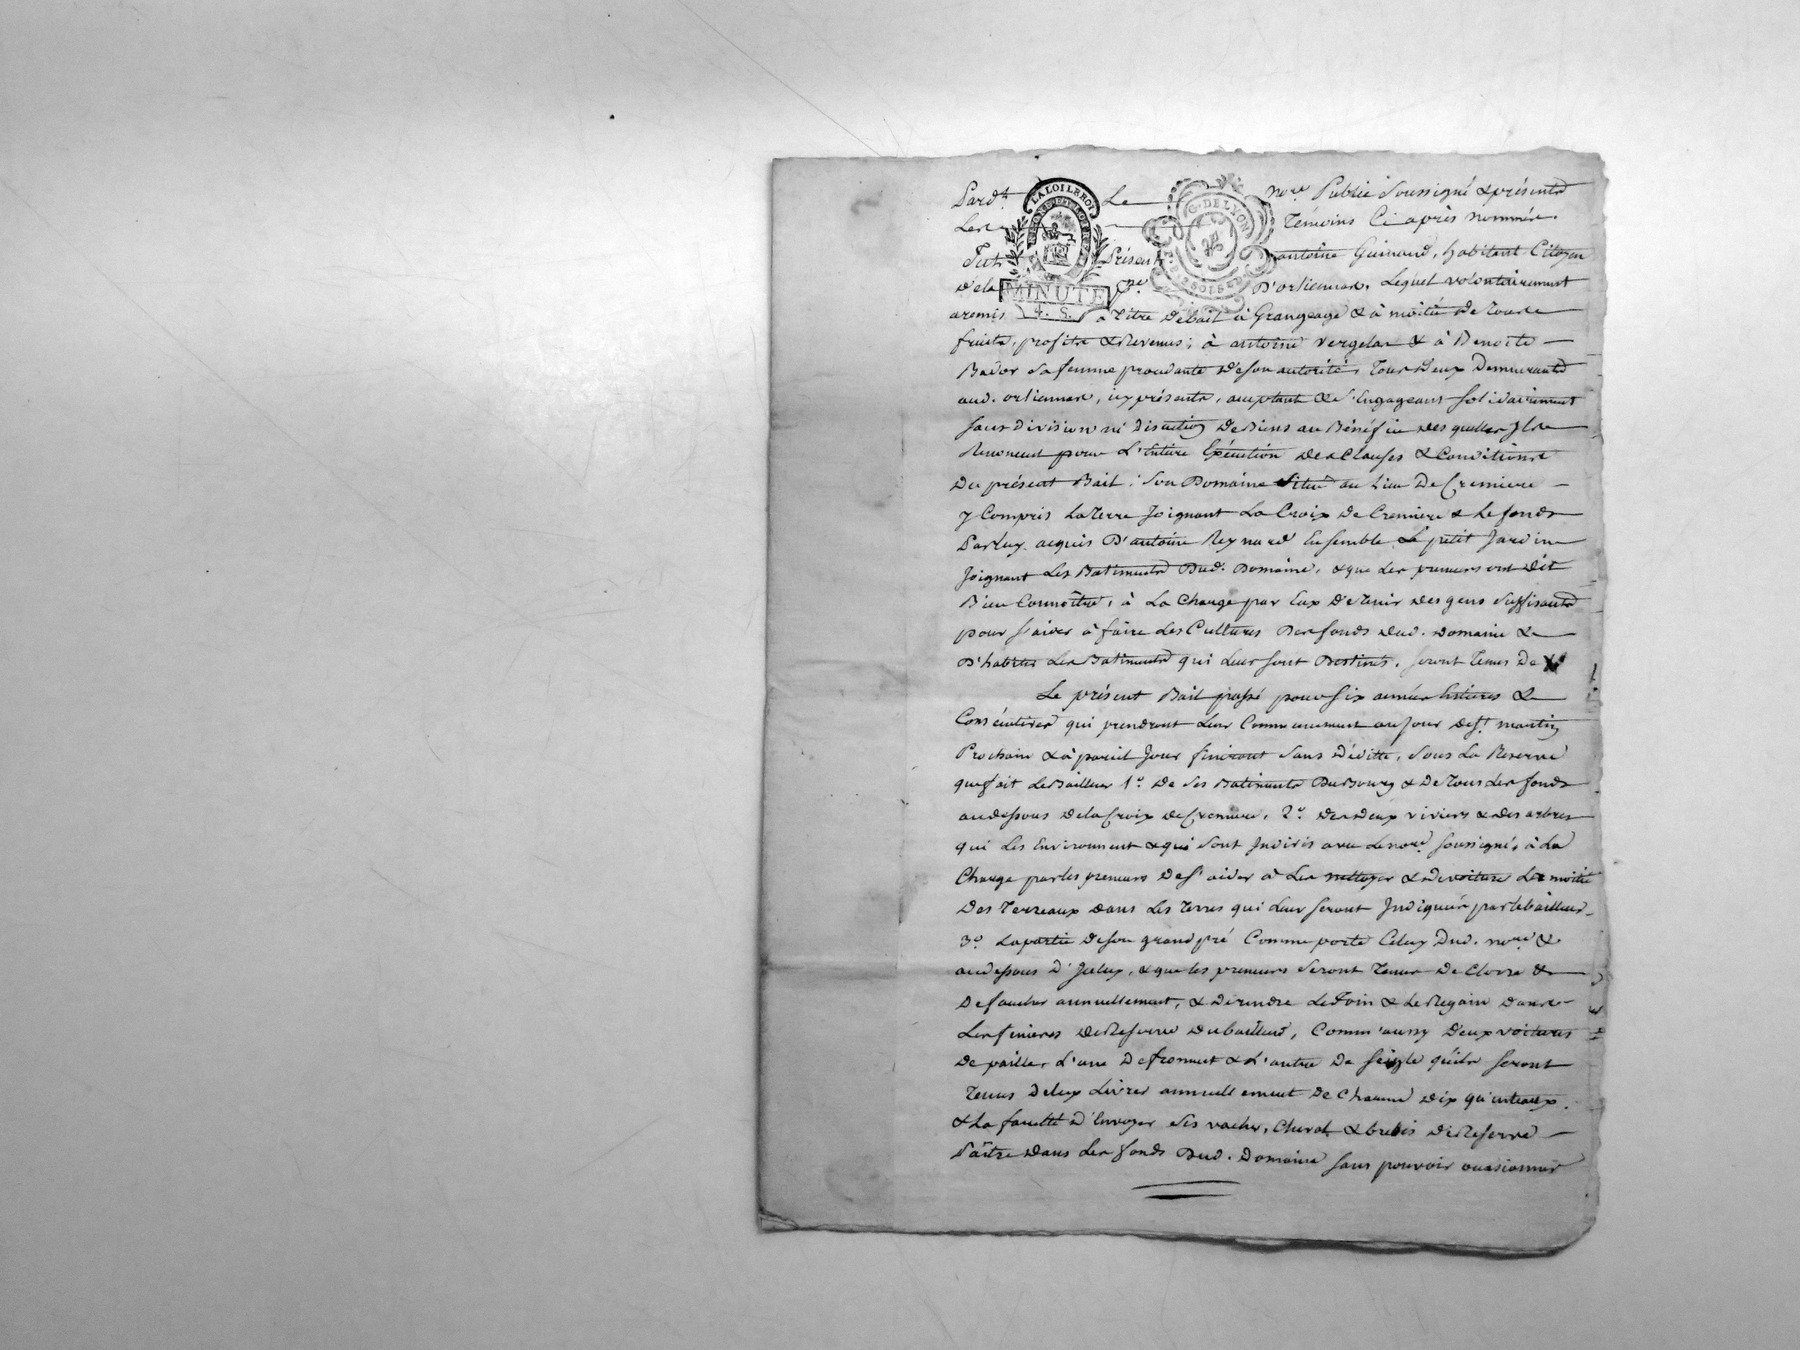 Pard.t Le no.re Public Soussigné & présents
Les Témoins Ci après nommés.
Fut Présent antoine Guinand, habitant Citoyen
de la D'orliennas, Lequel volontairement
a remis a Titre de bail à Grangeage & à moitié de Tous
fruits, profits & Revenus; à antoine Vergelas & à Benoite
Bador sa femme procédante de son autorité, Tous Deux Demeurants
aud. orliennas, icy présents, acceptant & s'Engageans solidairement
sans division ni discution de Biens au Bénéfice des quelles Ils
Renoncent pour L'entiere Exécution des Clauses & Conditions
Du présent Bail; Son Domaine Situé au Lieu De Cremiere
y Compris La Terre Joignant La Croix De Cremiere & Le fonds
Par luy acquis D'antoine Reynard Ensemble Le petit Jardin
Joignant Les Batiments Dud. Domaine, & que Les preneurs ont dit
Bien Connoitre, à La Charge par Eux De tenir des gens suffisants
pour s'aider à faire Les Cultures Des fonds dud. Domaine &
D'habiter Les Batiments qui Leur sont Destinés, seront Tenus De
Le présent Bail passé pour Six années Entieres &
Consécutives qui prendront Leur Commencement au Jour de St. martin
Prochain & à pareil Jour finiront Sans Déditte, Sous La Reserve
que fait Le Bailleur 1.o De Ses Batiments Du Bourg & De Tous Les fonds
au dessous de la Croix de Cremiere, 2.o Des Deux viviers & des arbres
qui Les Environnent & qui Sont Indivis avec Le no.re soussigné, à La
Charge par les preneurs De s'aider à Les nettoyer & De voiturer La moitié
Des Terreaux dans Les Terres qui Leur seront Indiquées par le bailleur
3.o La partie de son grand pré Comme porte Celuy Dud. no.re &
au dessous D'Iceluy, & que les preneurs Seront Tenus De Clorre &
De faucher annuellement, & de rendre Le Foin & Le Regain dans
Les finieres de Reserve du bailleur, Comm'aussy deux voitures
De pailles L'une De froment & L'autre De seigle qu'ils seront
Tenus de luy Livrer annuellement De Chacune dix quinteaux,
& La faculté D'Envoyer Ses vaches, Cheval & brebis de Reserve
Paître dans Les fonds Dud. Domaine sans pouvoir occasionner
LA LOI LE ROI
MINUTE
4. S.
G. DE LYON